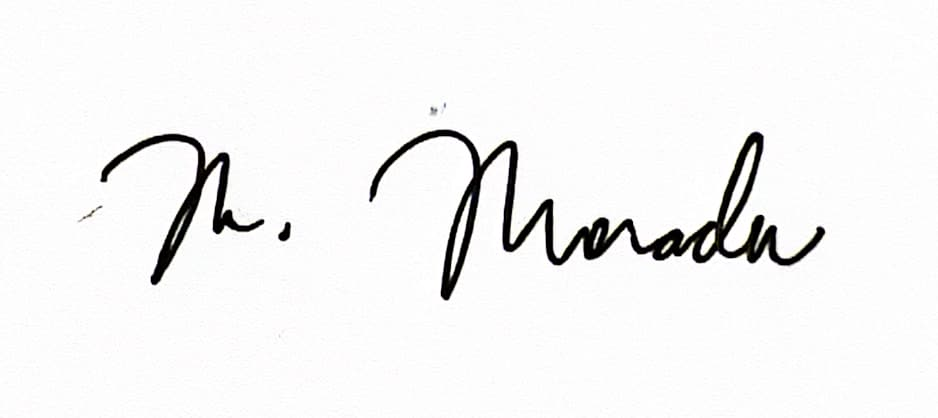 M. Moradu